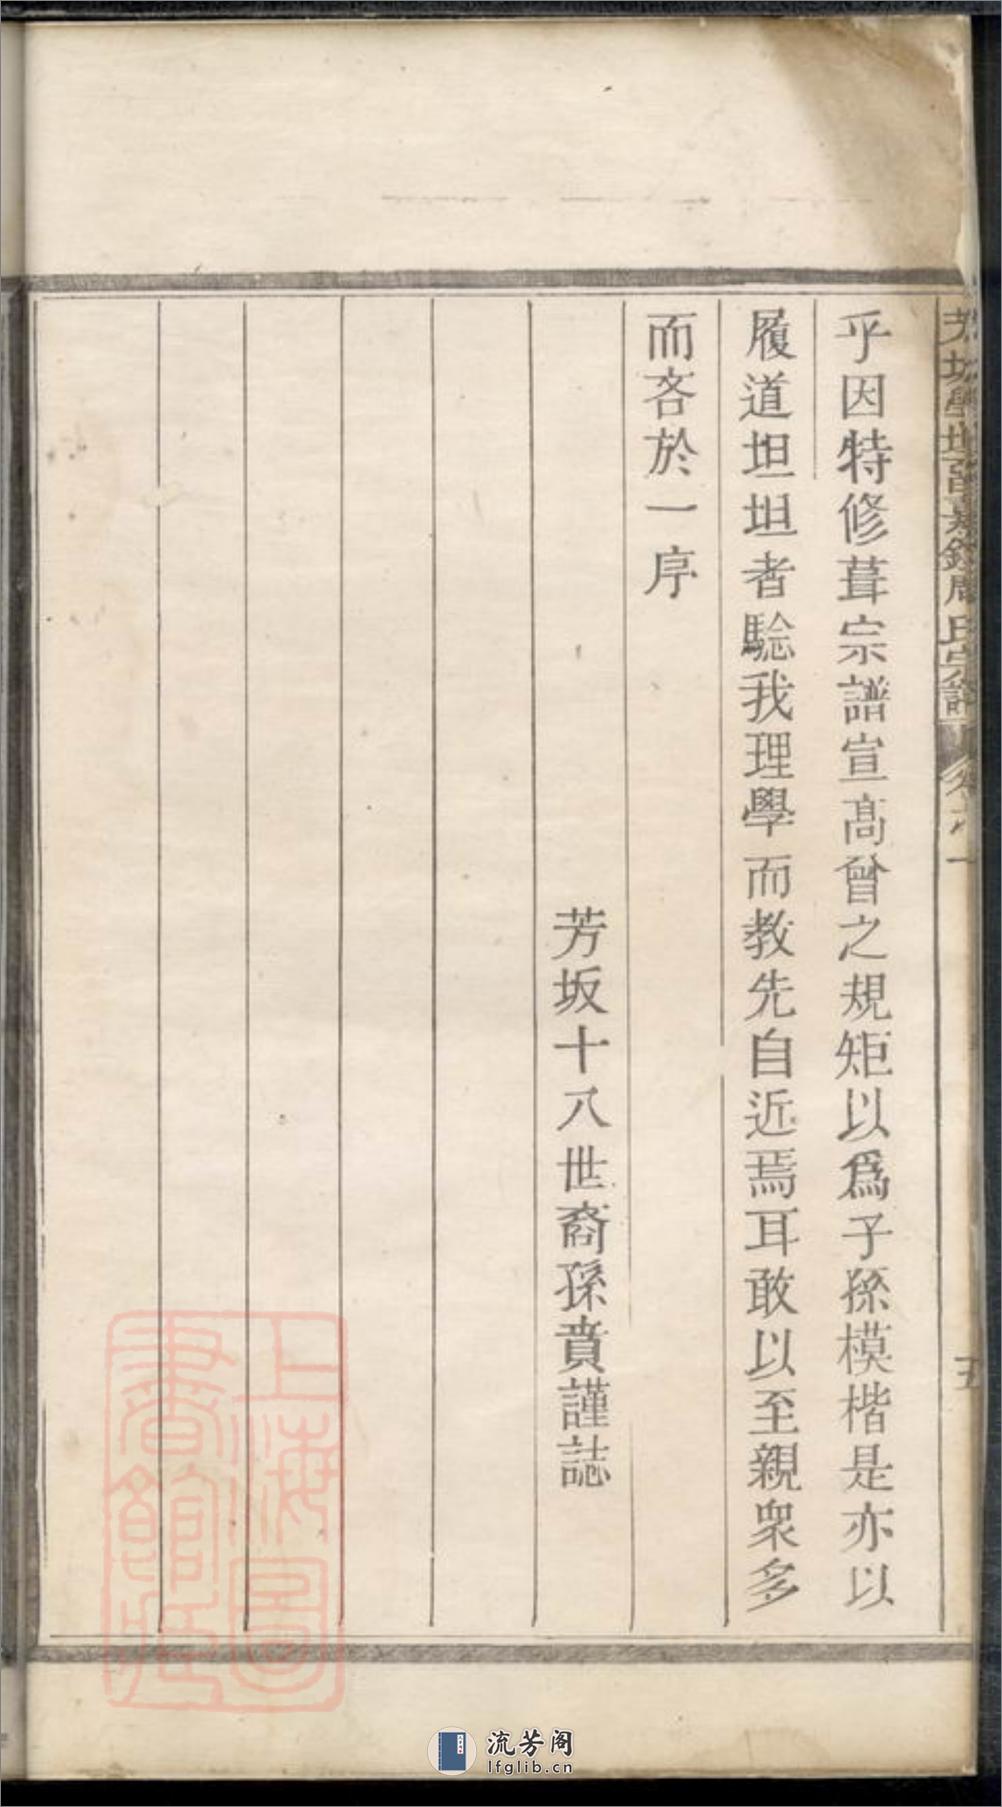 乎因特修葺宗譜宣高曾之規矩以爲子孫模楷是亦以
履道坦坦者驗我理學而教先自近焉耳敢以至親衆多
而吝於一序
芳坂十八世裔孫賁謹誌
氏宗譜
五
上海圖
書館藏
流芳阁
lfglib.cn